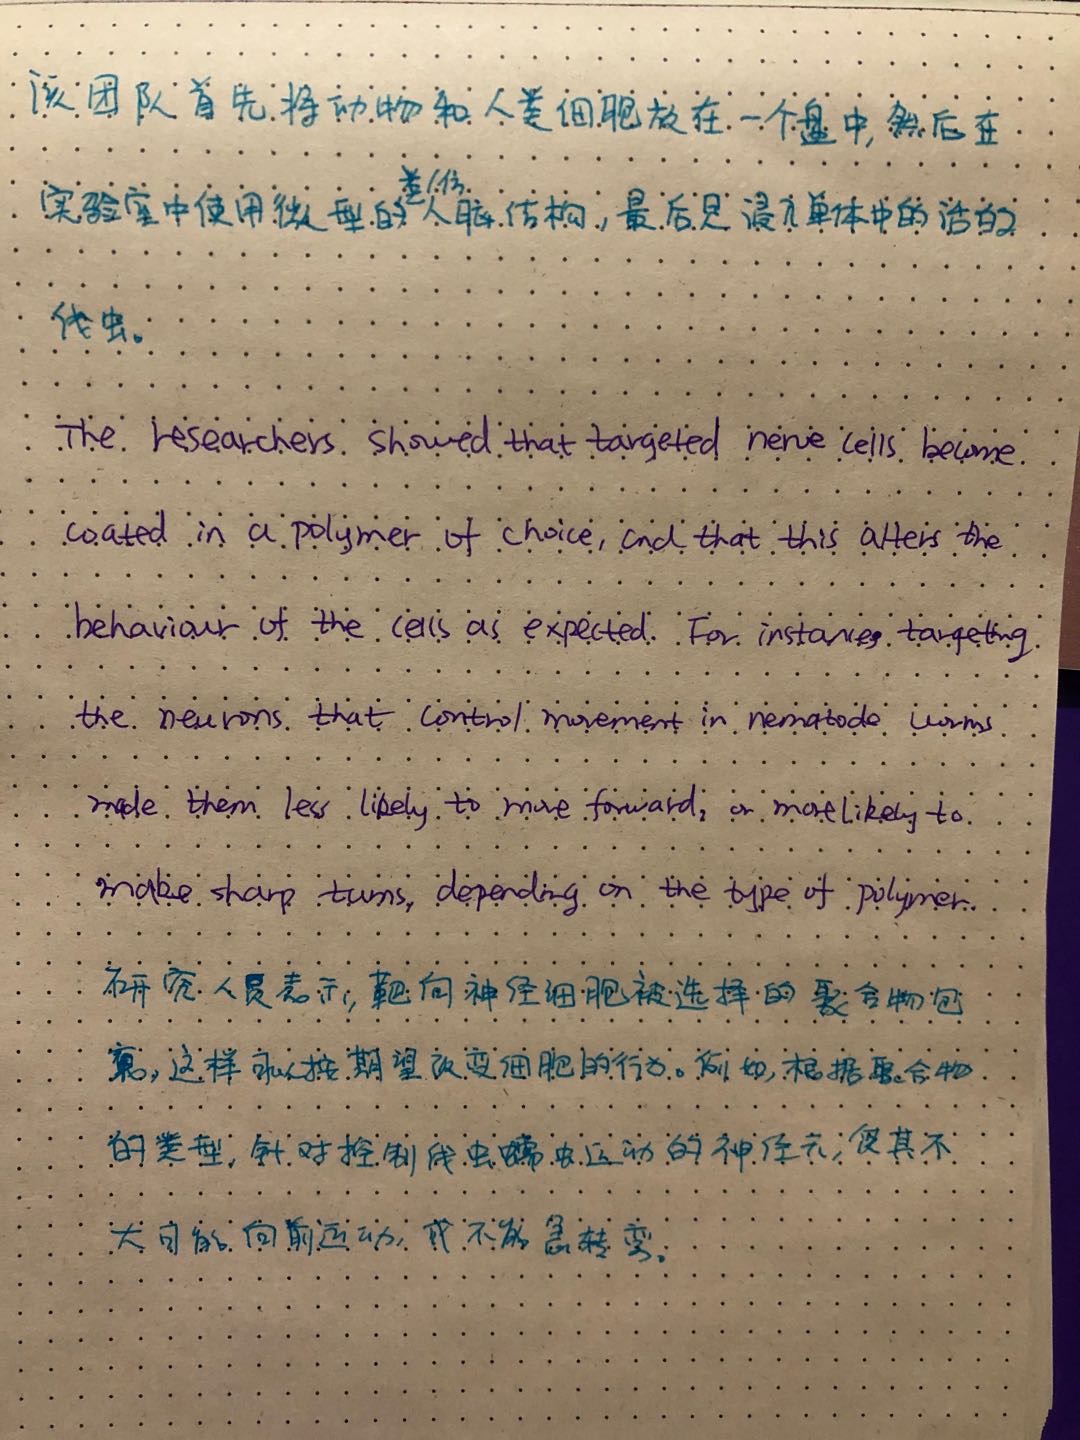 该团队首先将动物和人类细胞放在一个盘中,然后在
实验室中使用微型的类似人脑结构,最后是浸在单体中的活的
线虫。
The researchers showed that targeted nerve cells become
coated in a polymer of choice, and that this alters the
behaviour of the cells as expected. For instance, targeting
the neurons that control movement in nematode worms
made them less likely to move forward, or more likely to
make sharp turns, depending on the type of polymer.
研究人员表示,靶向神经细胞被选择的聚合物包
裹,这样可以按期望改变细胞的行为。例如,根据聚合物
的类型,针对控制线虫蠕虫运动的神经元,使其不
大可能向前运动,或不能急转变。